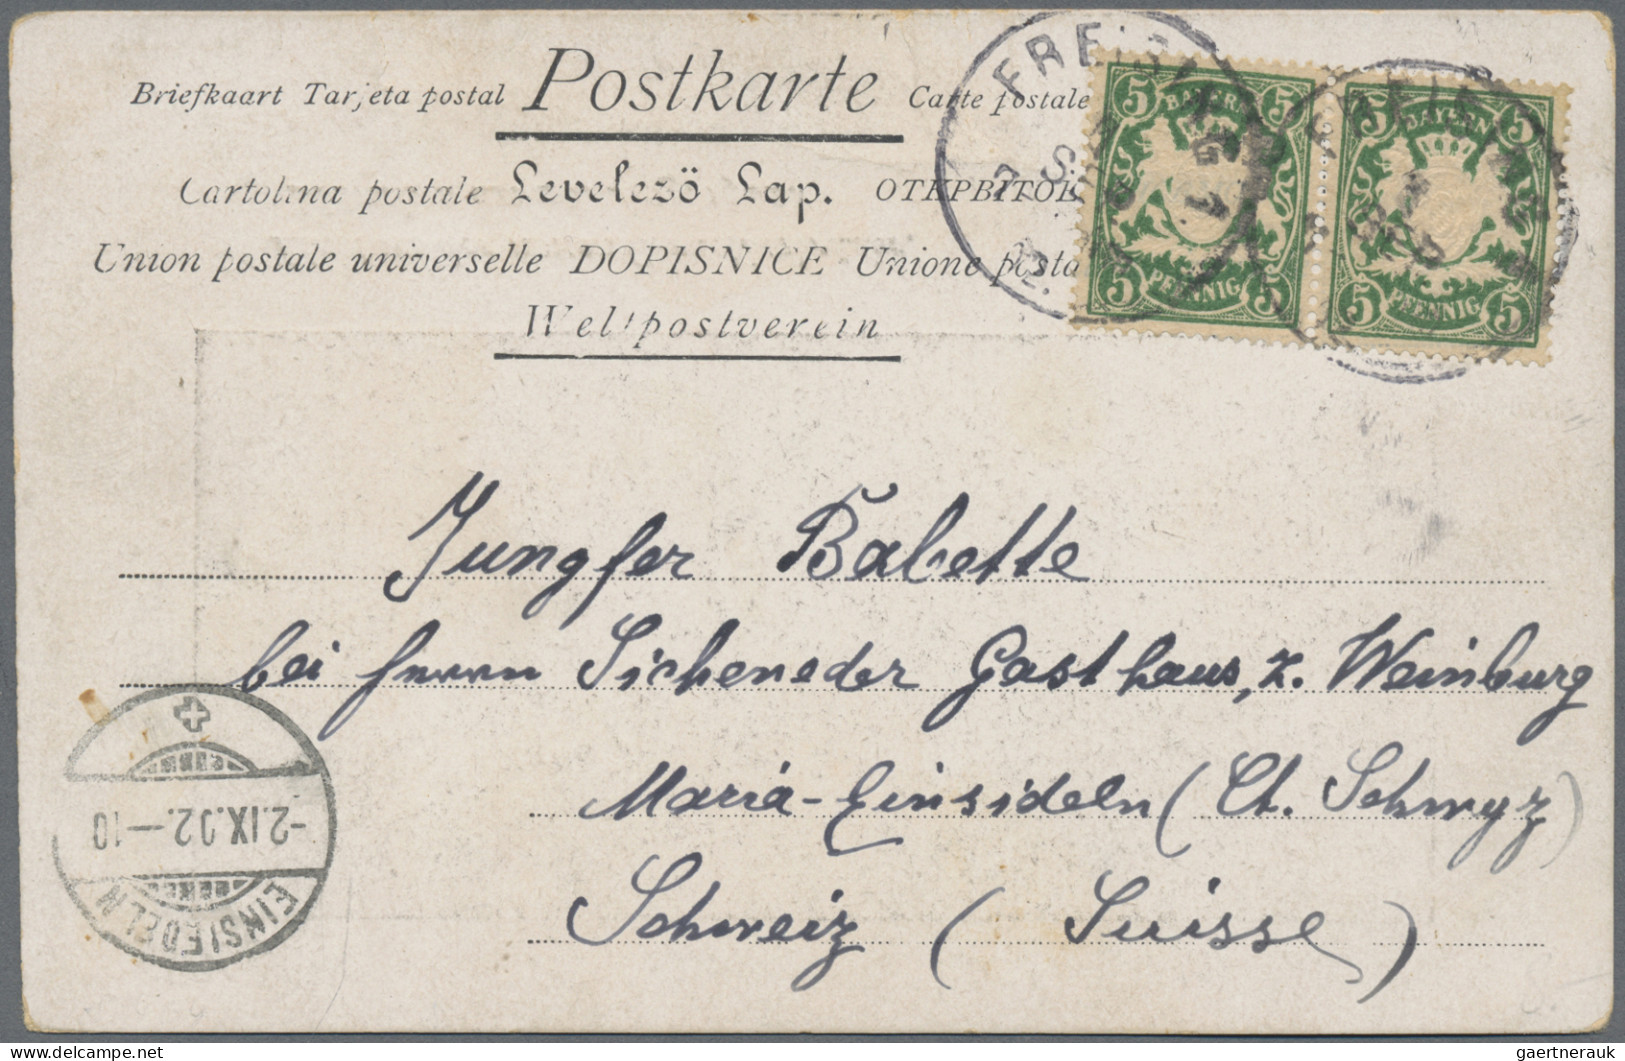 Briefkaart Tarjeta postal Postkarte Carte postale
Cartolina postale Levelező Lap. ОТКРВІТОЕ
Union postale universelle DOPISNICE Unione posta
Weltpostverein
FREISING
7 S
5 BAYERN 5
5 PFENNIG 5
FREISING
5 BAYERN 5
5 PFENNIG 5
Jungfer Babette
bei Herrn Sicheneder Gasthaus, z. Weinburg
Maria-Einsideln (Ct. Schwyz)
Schweiz (Suisse)
-2.IX.02.-10
EINSIEDELN
gaertnerauk